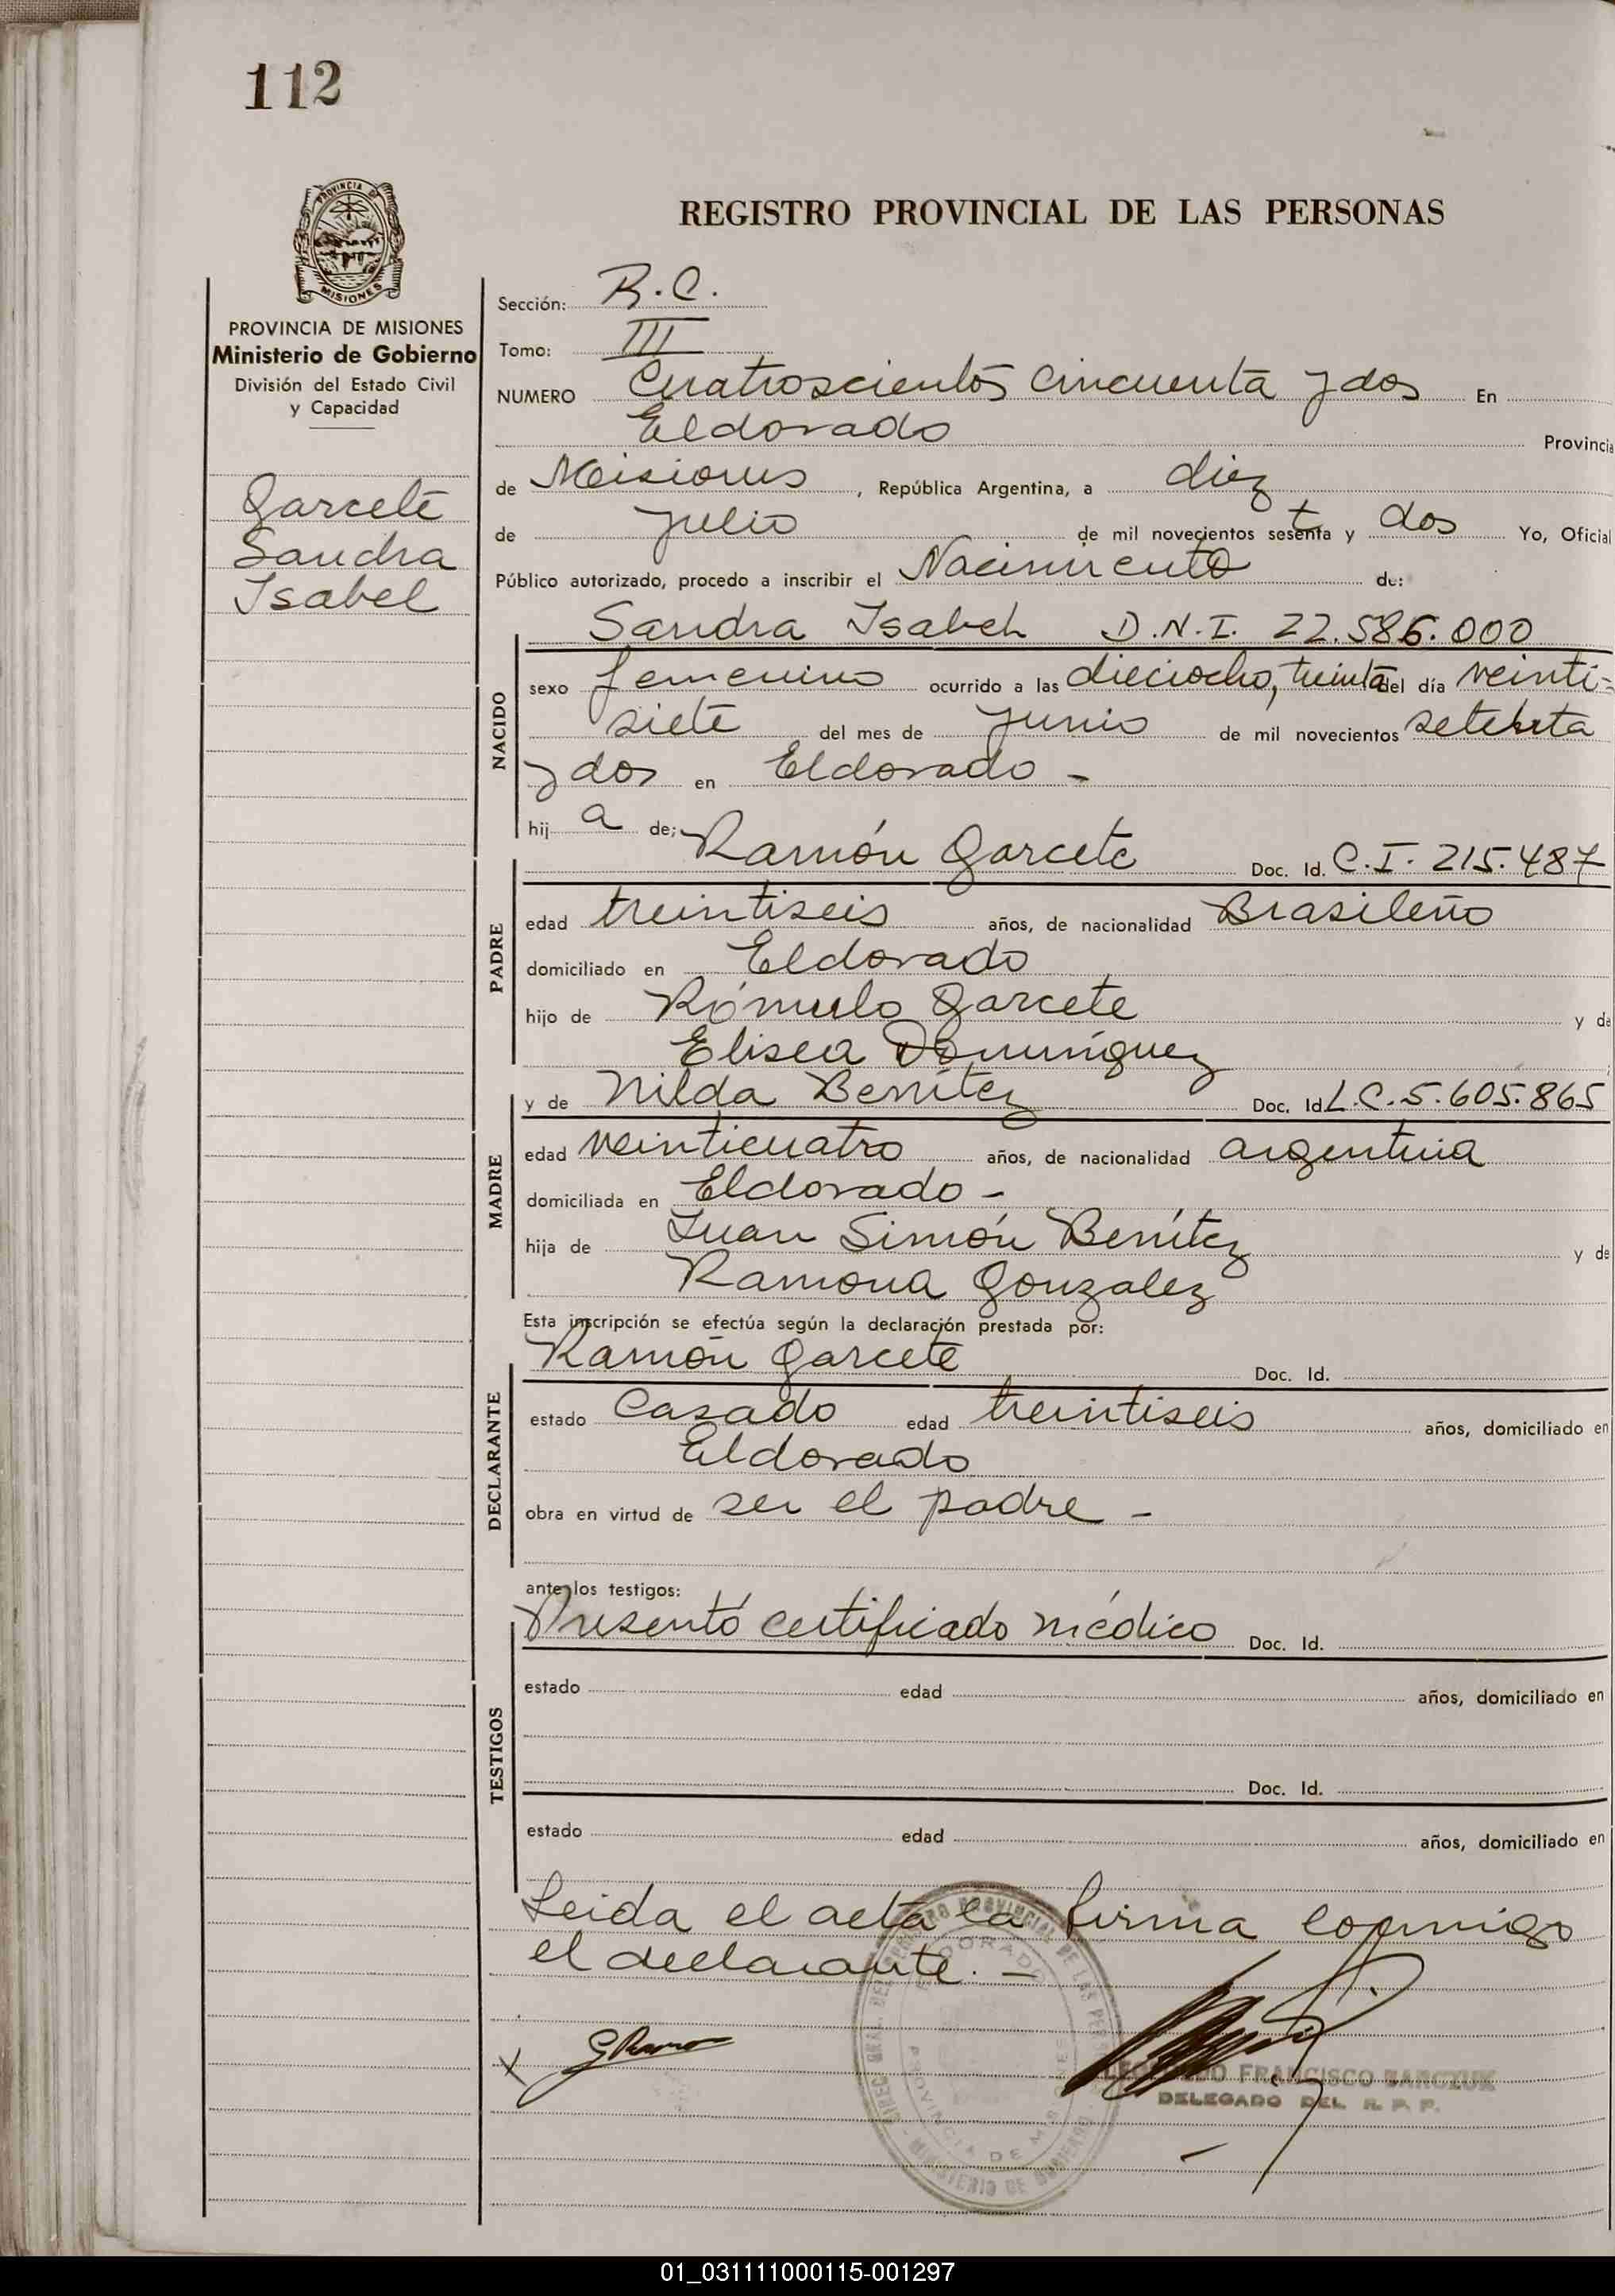 112
PROVINCIA DE MISIONES
PROVINCIA DE MISIONES
Ministerio de Gobierno
División del Estado Civil
y Capacidad
Garcete
Sandra
Isabel
REGISTRO PROVINCIAL DE LAS PERSONAS
Sección: R.C.
Tomo: III
NUMERO Cuatroscientos cincuenta y dos En
Eldorado Provincia
de Misiones, República Argentina, a diez
de julio de mil novecientos setenta y dos Yo, Oficial
Público autorizado, procedo a inscribir el Nacimiento de:
Sandra Isabel D.N.I. 22.586.000
NACIDO
sexo femenino ocurrido a las dieciocho, treinta del día veinti-
siete del mes de junio de mil novecientos setenta
y dos en Eldorado -
hij a de; Ramón Garcete Doc. Id. C.I. 215.487
PADRE
edad treintiseis años, de nacionalidad Brasileño
domiciliado en Eldorado
hijo de Rómulo Garcete y de
Elisea Domínguez
y de Nilda Benítez Doc. Id L.C. 5.605.865
MADRE
edad veinticuatro años, de nacionalidad argentina
domiciliada en Eldorado -
hija de Juan Simón Benítez y de
Ramona Gonzalez
Esta inscripción se efectúa según la declaración prestada por:
Ramón Garcete Doc. Id.
DECLARANTE
estado Casado edad treintiseis años, domiciliado en
Eldorado
obra en virtud de ser el padre -
ante los testigos:
Presentó certificado médico Doc. Id.
TESTIGOS
estado edad años, domiciliado en
Doc. Id.
estado edad años, domiciliado en
Leida el acta la firma conmigo
el declarante. -
X
ELDORADO
PROVINCIA DE MISIONES
MINISTERIO DE GOBIERNO
FRANCISCO
DELEGADO DEL R. P. P.
01_031111000115-001297